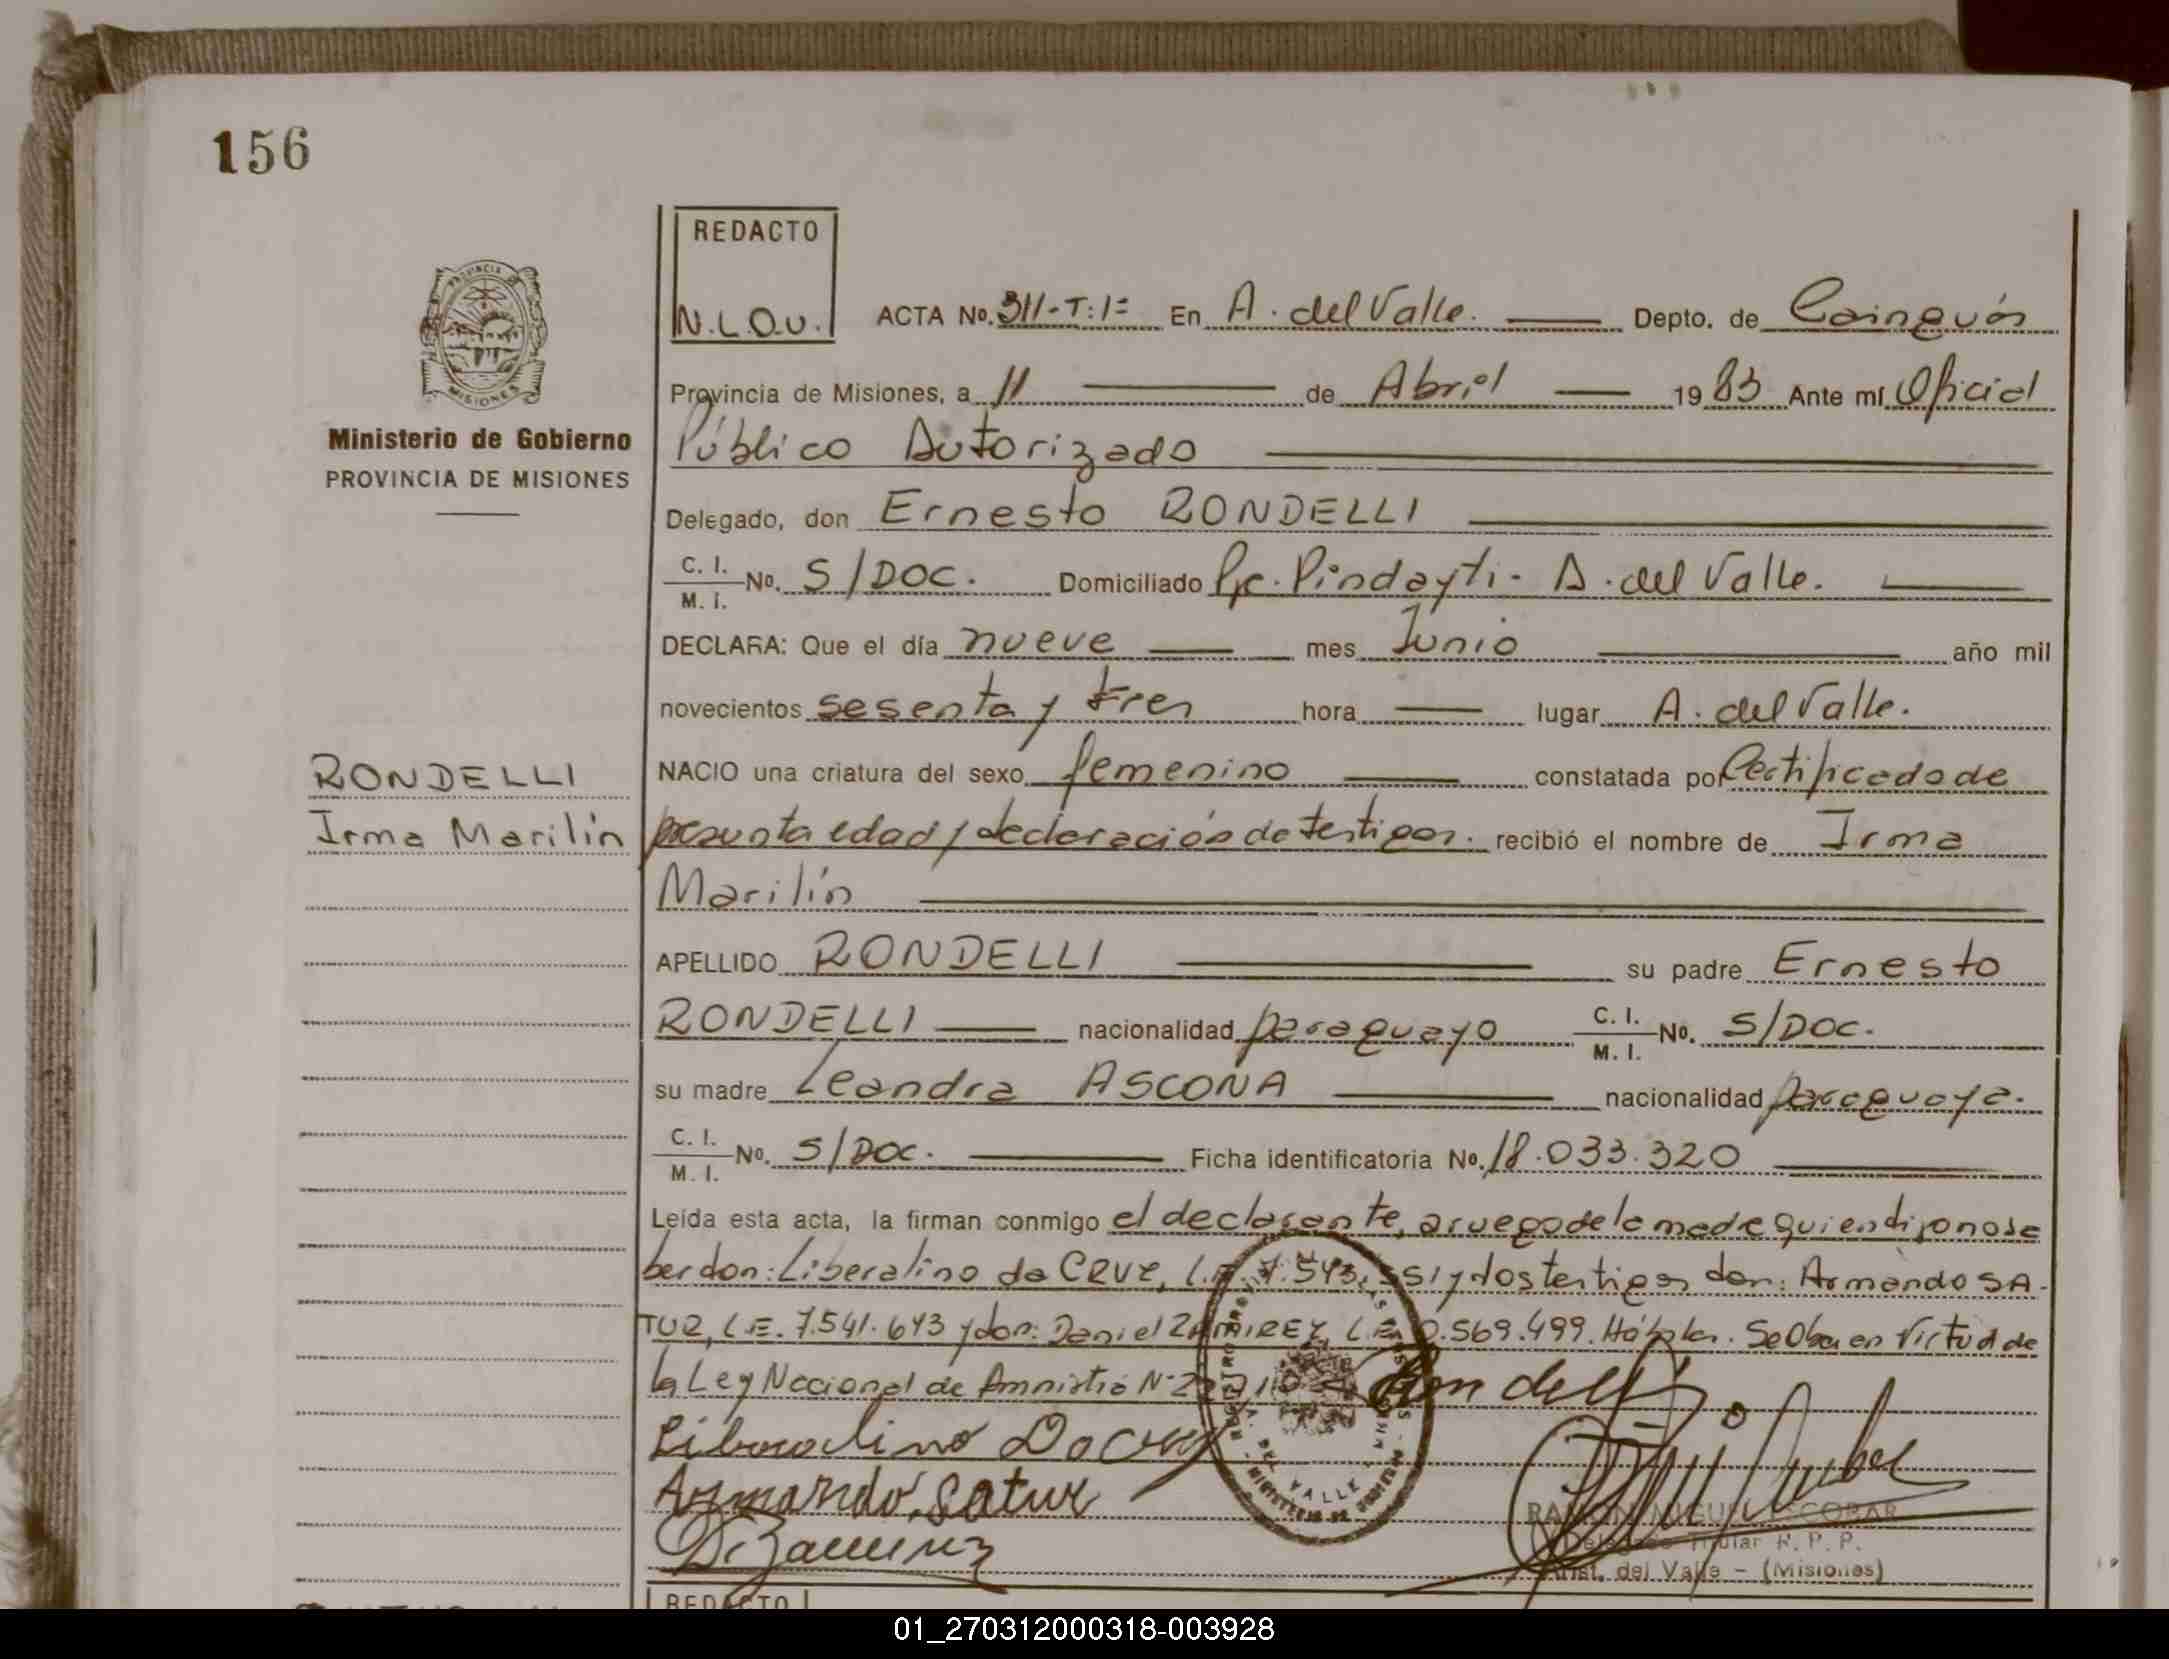 156
REDACTO
N.L.O.U.
PROVINCIA
MISIONES
Ministerio de Gobierno
PROVINCIA DE MISIONES
ACTA No. 311-T:1= En A. del Valle. Depto. de Cainguás
Provincia de Misiones, a 11 de Abril 1983 Ante mí Oficial
Público Autorizado
Delegado, don Ernesto RONDELLI
C. I. / M. I. No. S/DOC. Domiciliado Pje. Pindayti - A. del Valle.
DECLARA: Que el día nueve mes Junio año mil
novecientos sesenta y tres hora lugar A. del Valle.
RONDELLI
Irma Marilín
NACIO una criatura del sexo femenino constatada por Certificado de
presunta edad y declaración de testigos. recibió el nombre de Irma
Marilín
APELLIDO RONDELLI su padre Ernesto
RONDELLI nacionalidad paraguayo C. I. / M. I. No. S/DOC.
su madre Leandra ASCONA nacionalidad paraguaya.
C. I. / M. I. No. S/DOC. Ficha identificatoria No. 18.033.320
Leída esta acta, la firman conmigo el declarante, a ruego de la madre quien dijo no sa
ber don: Liberalino da CRUZ, L.E. 7.543. y dos testigos don: Armando SA-
TUR, L.E. 7.541.643 y don: Daniel L.E. 569.499. Hábiles. Se Obra en Virtud de
la Ley Nacional de Amnistía Nº
Rondelli
Liberalino Da Cruz
Armando Satur
RAMON MIGUEL ESCOBAR
Delegado Titular R. P. P.
Arist. del Valle - (Misiones)
REDACTO
01_270312000318-003928